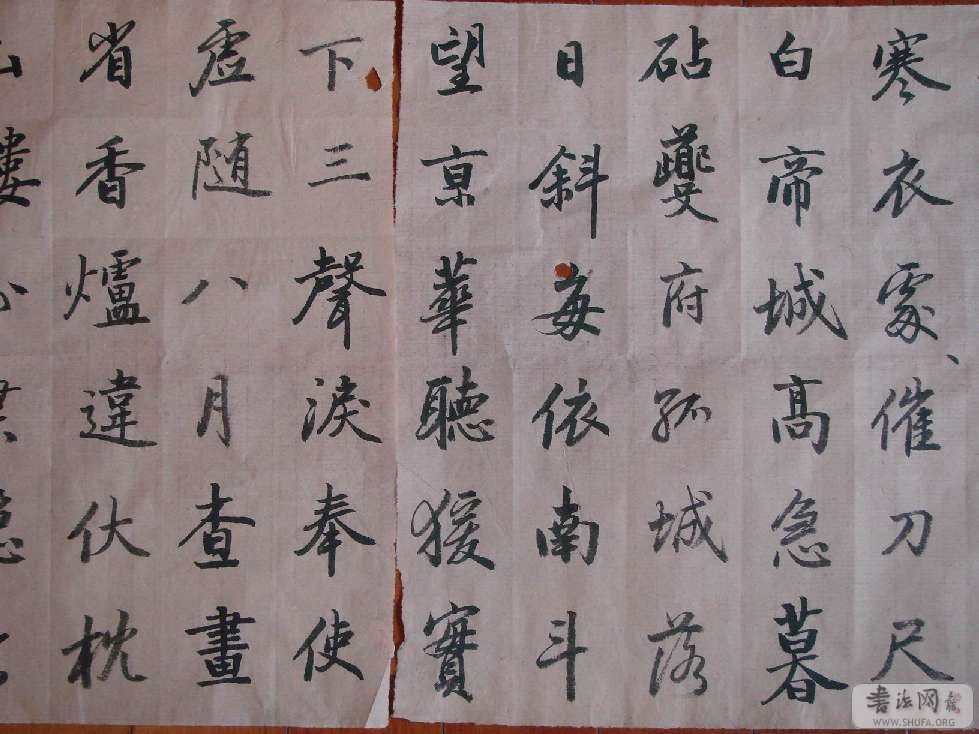 寒衣處、催刀尺
白帝城髙急暮
砧夔府孤城落
日斜每依南斗
望亰華聽猨實
下三聲淚奉使
虛随八月查畫
省香爐違伏枕
書法网
WWW.SHUFA.ORG